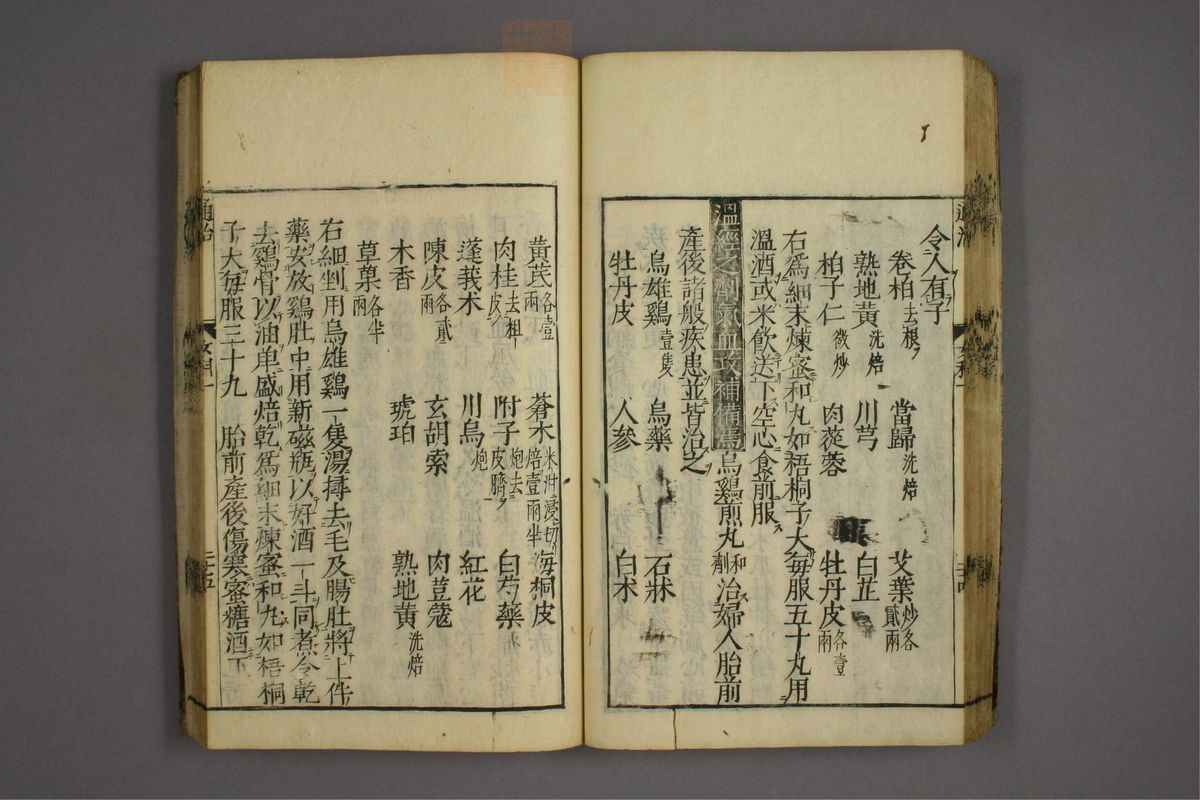 令人有子
卷柏去根 當歸洗焙 艾葉炒各貳兩
熟地黃洗焙 川芎 白芷
柏子仁微炒 肉蓯蓉 牡丹皮各壹兩
右爲細末煉蜜和丸如梧桐子大每服五十丸用
溫酒或米飲送下空心食前服
溫經之劑氣血攻補備焉烏鷄煎丸和劑治婦人胎前
產後諸般疾患並皆治之
烏雄鷄壹隻 烏藥 石牀
牡丹皮 人參 白朮
黃芪各壹兩 蒼木米泔浸切焙壹兩半 海桐皮
肉桂去粗皮 附子炮去皮臍 白芍藥
蓬莪朮 川烏炮 紅花
陳皮各貳兩 玄胡索 肉荳蔻
木香 琥珀 熟地黃洗焙
草菓各半兩
右細剉用烏雄鷄一隻湯撏去毛及腸肚將上件
藥安放鷄肚中用新磁瓶以好酒一斗同煮令乾
去鷄骨以油单盛焙乾爲細末煉蜜和丸如梧桐
子大每服三十九 胎前產後傷寒蜜糖酒下
通治